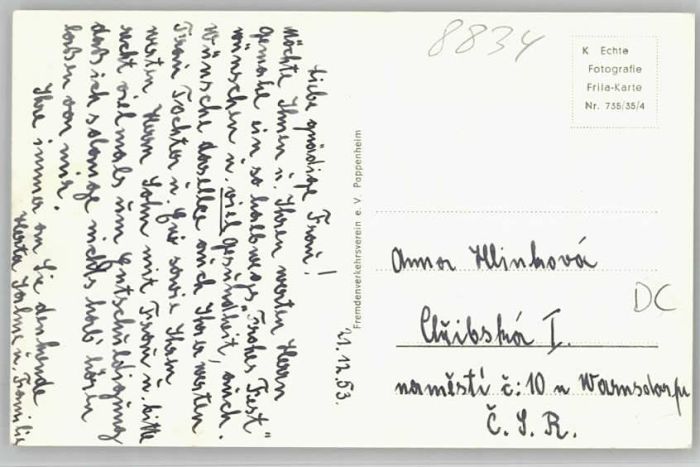 21.12.53.
Liebe gnädige Frau!
Möchte Ihnen u. Ihren werten Herrn
Gemahl ein so halbwegs "Frohes Fest"
wünschen u. viel Gesundheit, auch.
Wünsche dasselbe auch Ihrer werten
Frau Tochter u. sowie Ihrem
werten Herrn Sohn mit Frau u. bitte
recht vielmals um Entschuldigung
daß ich solange nichts hab' hören
laßen von mir.
Ihre immer an Sie denkende
Herta u. Familie
Fremdenverkehrsverein e. V. Pappenheim
8834
K Echte
Fotografie
Frila-Karte
Nr. 735/35/4
Anna Hlinková
Chřibská I.
DC
naměstí č: 10 u Warnsdorfu
Č. S. R.